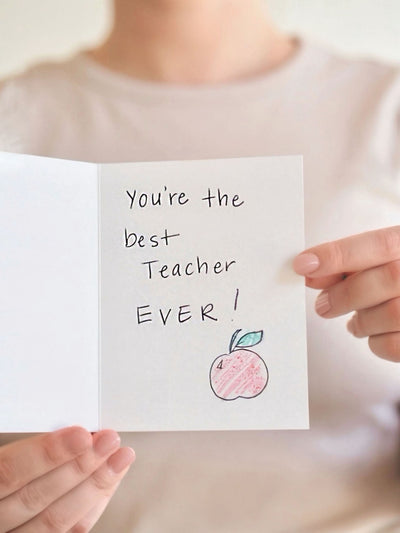 You're the
best
Teacher
EVER!